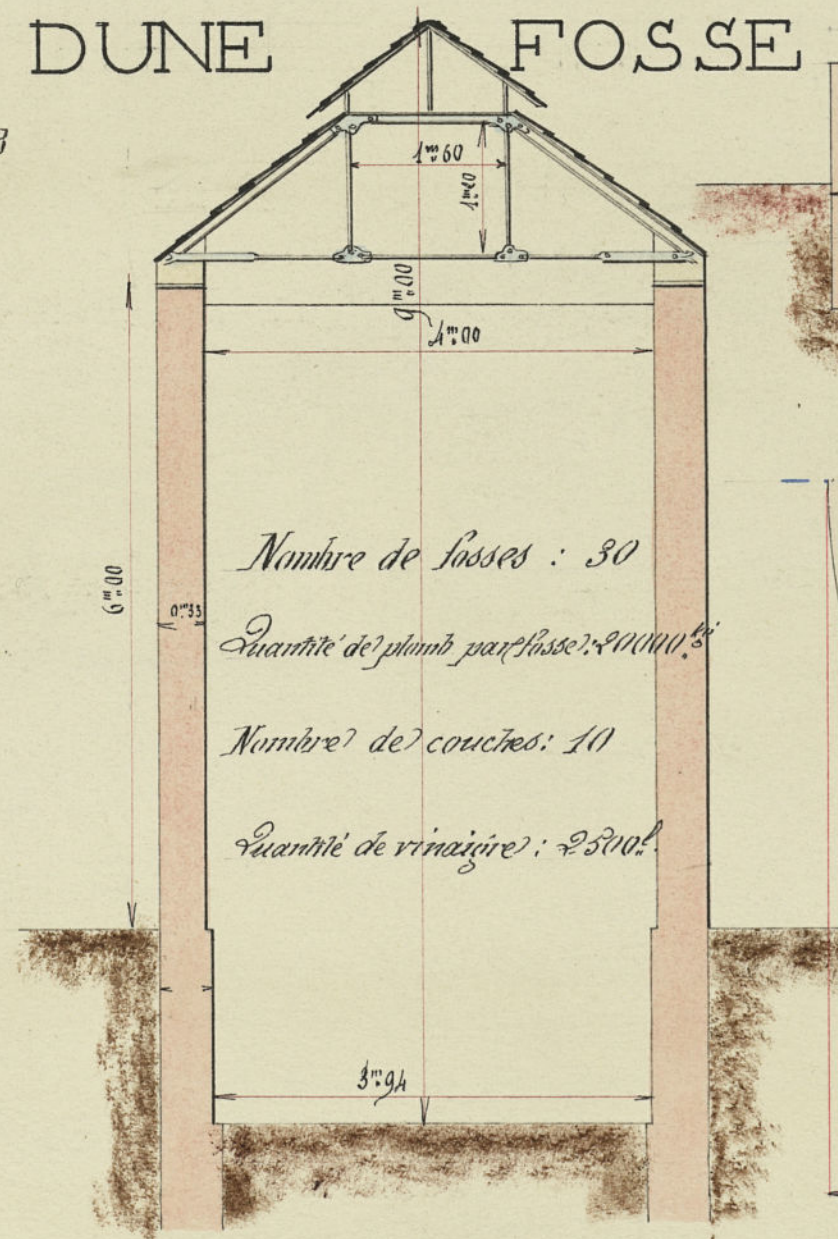 DUNE FOSSE
1m60
1m20
9m00
4m00
6m00
0m33
Nombre de fosses : 30
Quantité de plomb par fosse : 20000 kg
Nombre de couches : 10
Quantité de vinaigre : 2500 l.
3m94